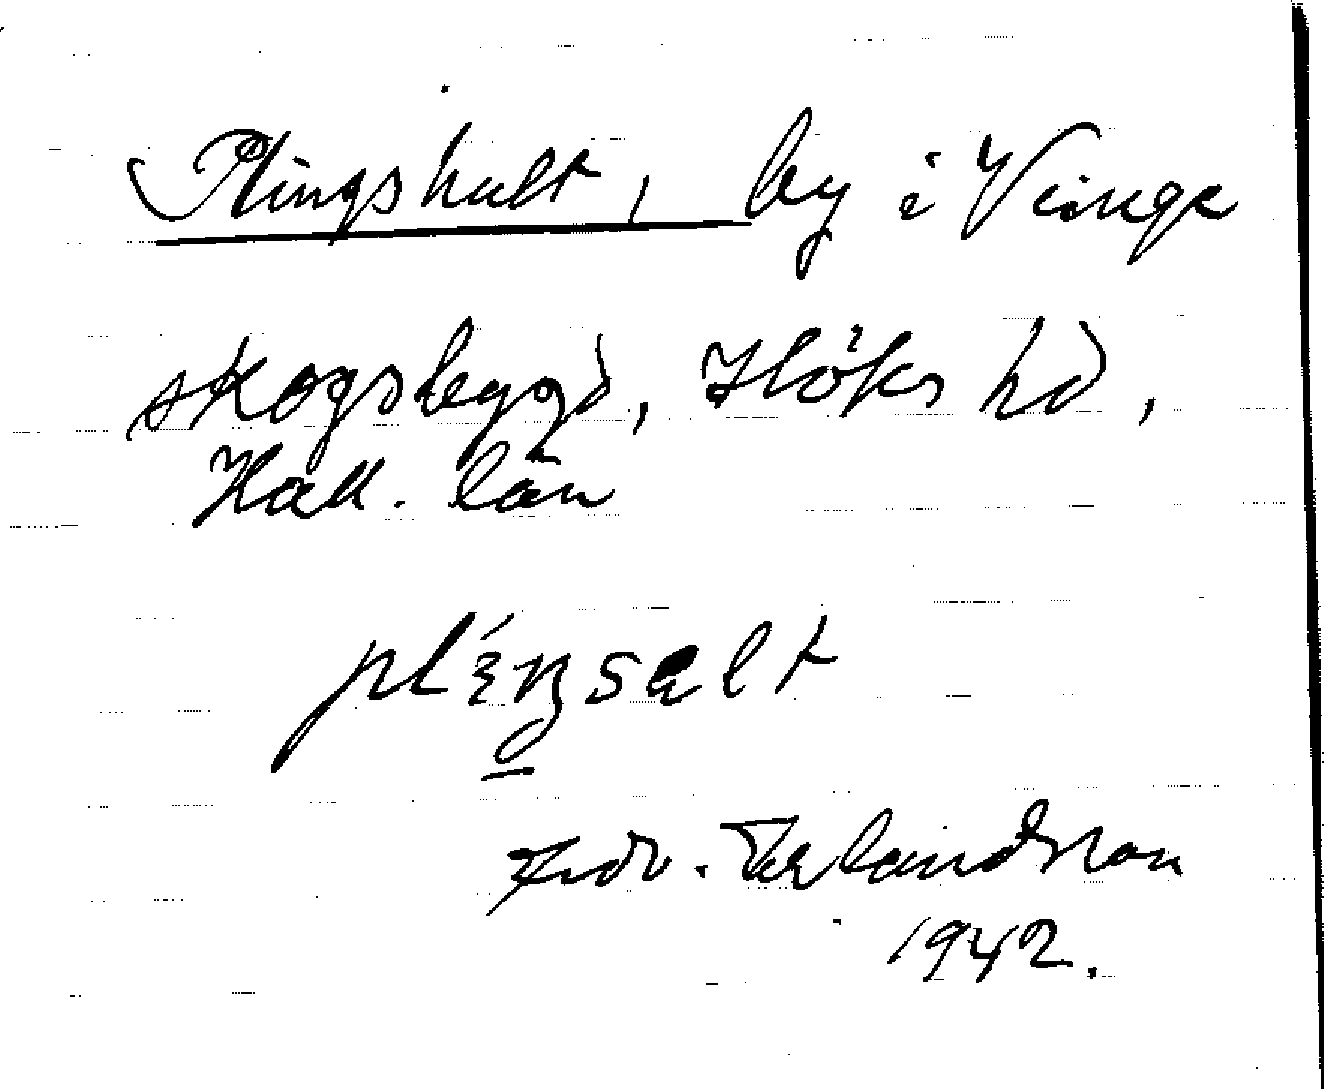 Plingshult, by i Veinge
skogsbygd, Höks hd,
Hall. län
pléŋsɐlt
Erlandsson
1942.